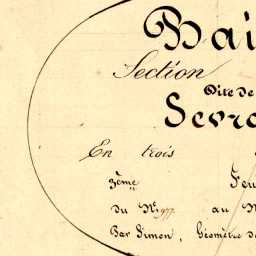 Hai
Section
Dite de
Sevr
En trois
3ème Feu
du N° 977. au N
Par Simon, Géomètre d